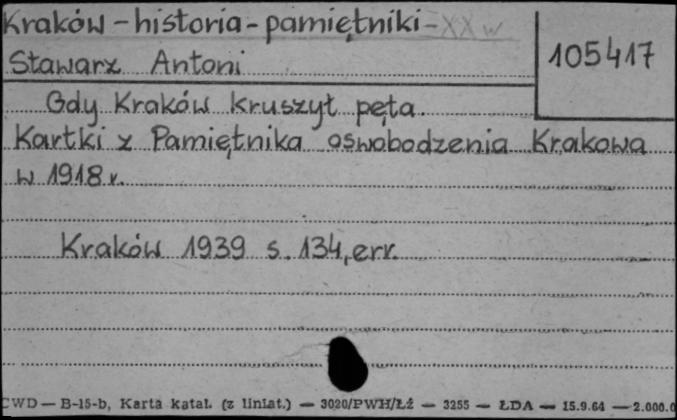 Kraków - historia - pamiętniki - XX w
Stawarz Antoni
105417
Gdy Kraków kruszył pęta.
Kartki z Pamiętnika oswobodzenia Krakowa
w 1918 r.
Kraków 1939 s. 134, err.
CWD — B-15-b, Karta katal. (z liniat.) — 3020/PWH/Łź — 3255 — ŁDA — 15.9.64 — 2.000.0